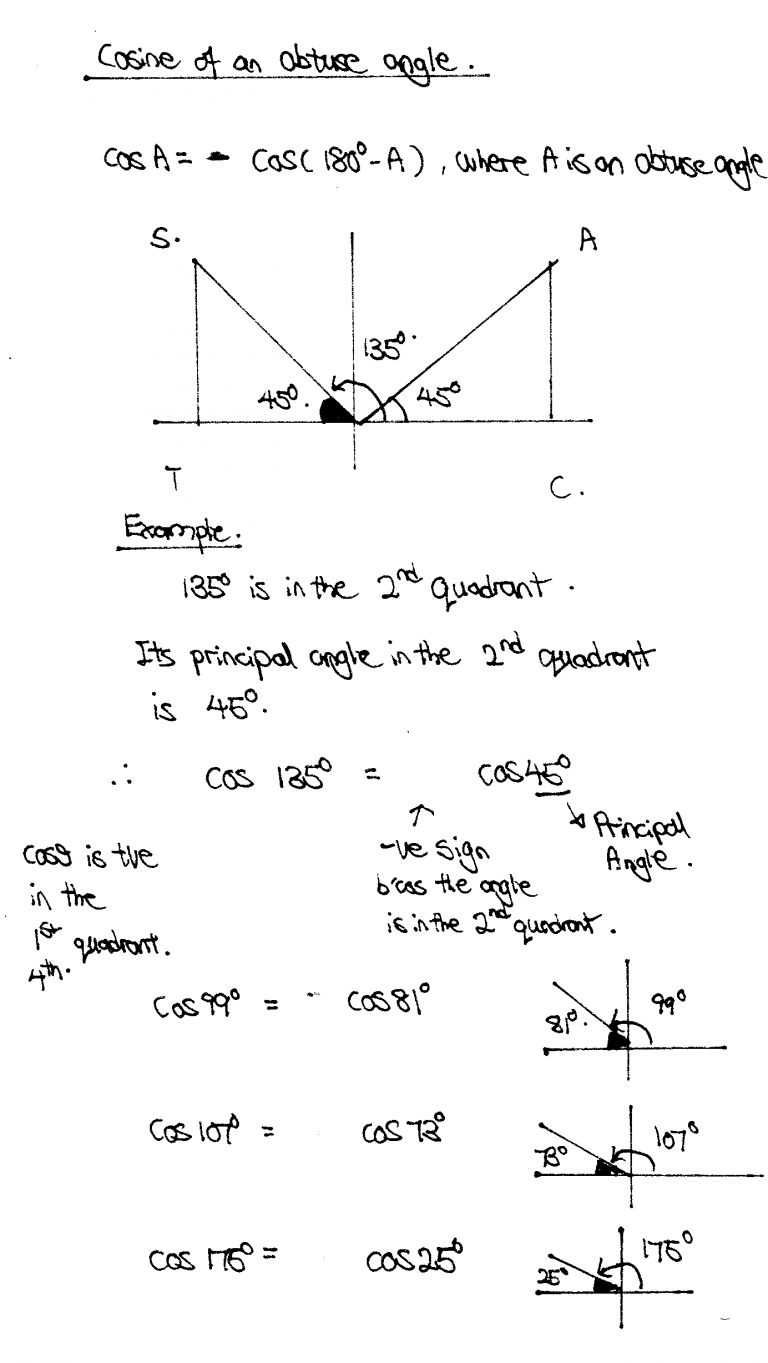 Cosine of an obtuse angle.
cos A = - cos(180° - A), where A is an obtuse angle
S. A
135°.
45°. 45°
T C.
Example.
135° is in the 2nd quadrant.
Its principal angle in the 2nd quadrant
is 45°.
∴ cos 135° = cos 45°
↑ ↘ Principal
Angle.
-ve sign
b'cos the angle
is in the 2nd quadrant.
cosθ is +ve
in the
1st quadrant.
4th.
cos 99° = - cos 81°
81°. 99°
cos 107° = cos 73°
73° 107°
cos 175° = cos 25°
25° 175°